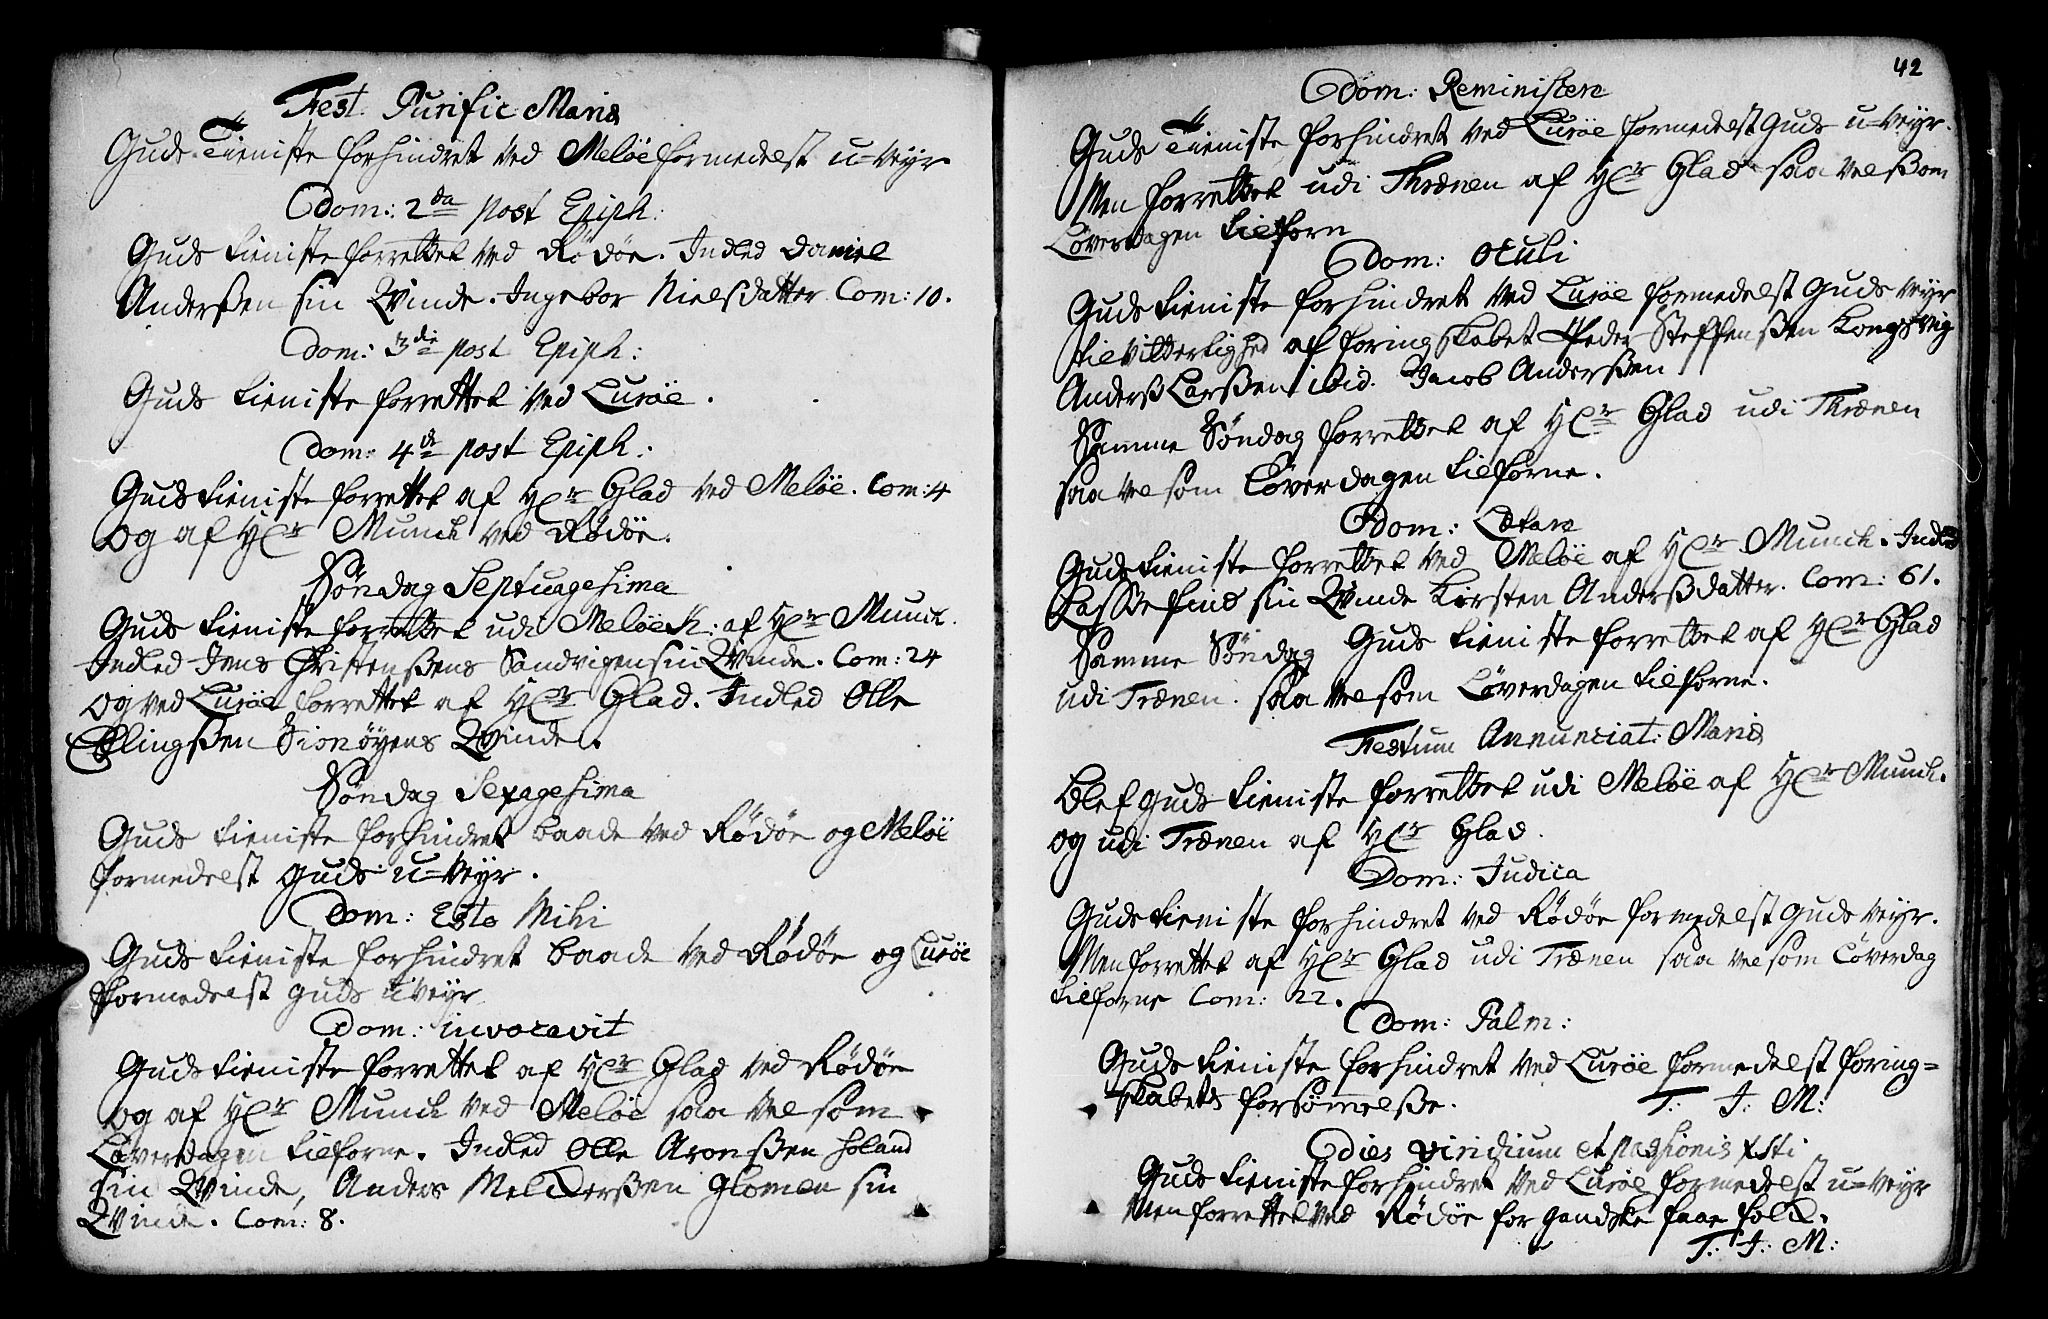 Fest. Purific: Mariæ
Guds Tieniste forhindret ved Meløe formedelst u=veyr
Dom: 2da post Epiph:
Guds tieniste forrettet ved Rødøe. Indled Daniel
Anderßen sin Qvinde. Ingebor Nielsdatter. Com: 10.
Dom: 3die post Epiph:
Guds tieniste forrettet ved Lurøe.
Dom: 4de post Epiph:
Guds tieniste forrettet af Hr Glad ved Meløe. Com: 4
og af Hr Munch ved Rødøe.
Søndag Septuagesima
Guds tieniste forrettet udi Meløe K: af Hr Munch.
Indled Jens Christenßens Sandvigen sin Qvinde. Com: 24
og ved Lurøe forrettet af Hr Glad. Indled Olle
Ellingßen Qvinde.
Søndag Sexagesima
Guds tieniste forhindret baade ved Rødøe og Meløe
formedelst Guds u=veyr.
Dom: Esto Mihi
Guds tieniste forhindret baade ved Rødøe og Lurøe
formedelst Guds uveyr
Dom: invocavit
Guds tieniste forrettet af Hr Glad ved Rødøe
og af Hr Munch ved Meløe saa vel som
Løverdagen tilforne. Indled Olle Aronßen Holand
sin Qvinde, Anders Melckerßen Glomen sin
Qvinde. Com: 8.
42
Dom: Reminiscere
Guds Tieniste forhindret ved Lurøe formedelst Guds u=veyr.
Men forrettet udi Thrænen af Hr Glad saa vel ßom
Løverdagen tilforn
Dom: Oculi
Guds tieniste forhindret ved Lurøe formedelst Guds veyr
af foringskabet Peder Steffenßen Kongsvig
Anderß Larßen ibid. Jacob Anderßen
Samme Søndag forrettet af Hr Glad udi Thrænen
saa vel som Løverdagen tilforne.
Dom: Lætare
Guds tieniste forrettet ved Meløe af Hr Munch. Indled
Lasse find sin Qvinde Kirsten Anderßdatter. Com: 61.
Samme Søndag Guds tieniste forrettet af Hr Glad
udi Trænen. saa vel som Løverdagen tilforne.
Festum Annunciat: Mariæ
Blef Guds tieniste forrettet udi Meløe af Hr Munch.
og udi Trænen af Hr Glad.
Dom: Judica
Guds tieniste forhindret ved Rødøe formedelst Guds veyr.
Men forrettet af Hr Glad udi Trænen saa vel som Løverdag
tilforne Com: 22.
Dom: Palm:
Guds tieniste forhindret ved Lurøe formedelst foring=
skabets forsømelße. T: J: M:
Dies viridium et passionis Xsti
Guds tieniste forhindret ved Lurøe formedelst u=veyr
Men forrettet ved Rødøe for gandske faae folck.
T: J: M: